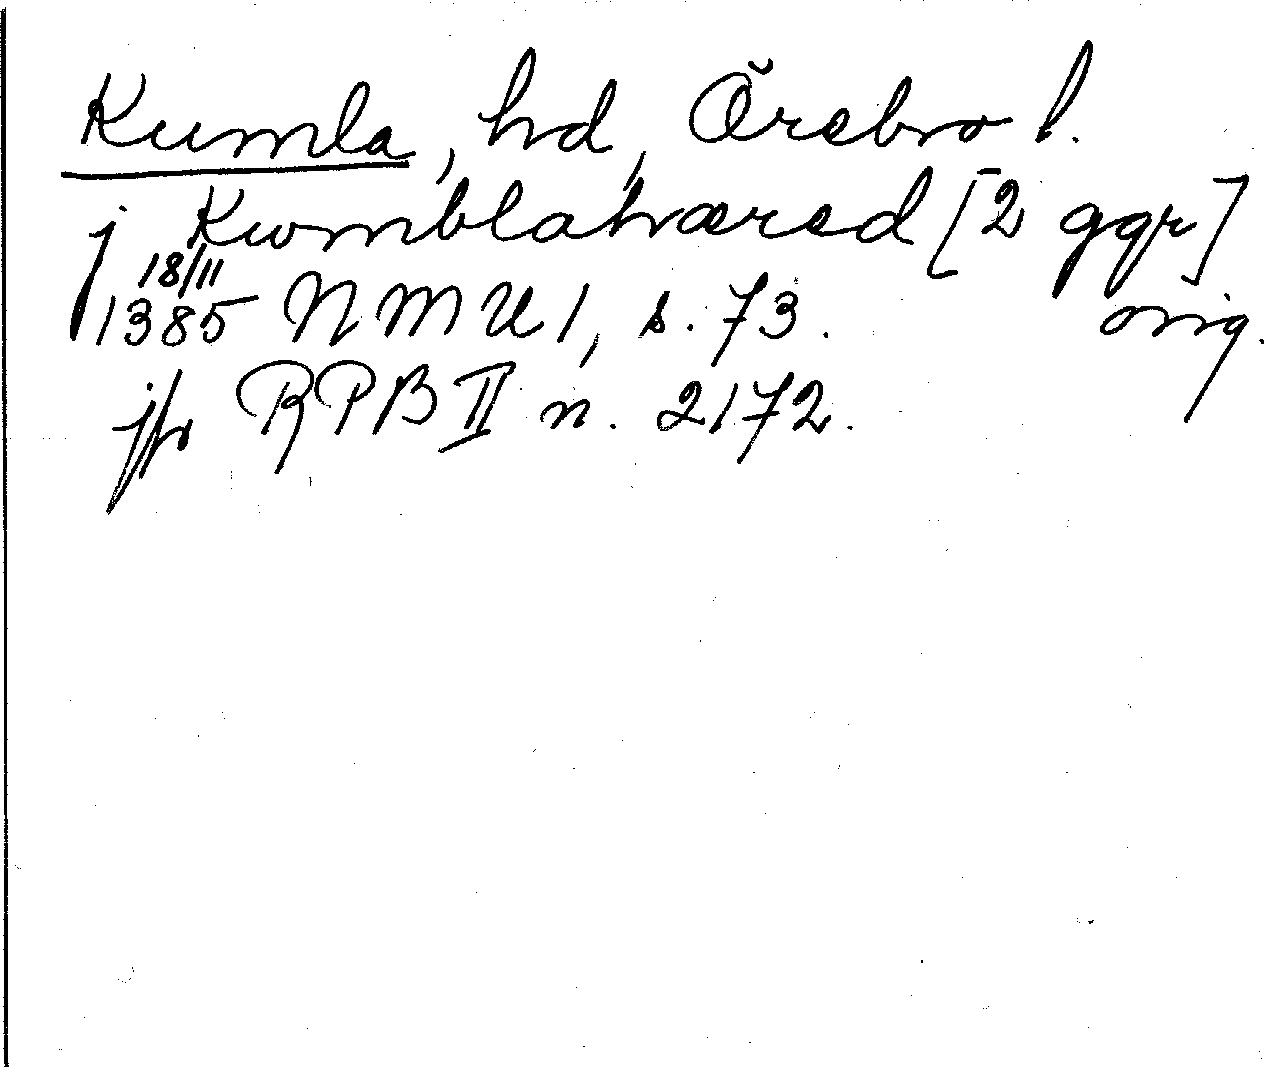 Kumla, hd, Örebro l.
j Kwmblahæred [2 ggr]
18/11
1385 NMU 1, s. 73. orig.
jfr RPB II n. 2172.